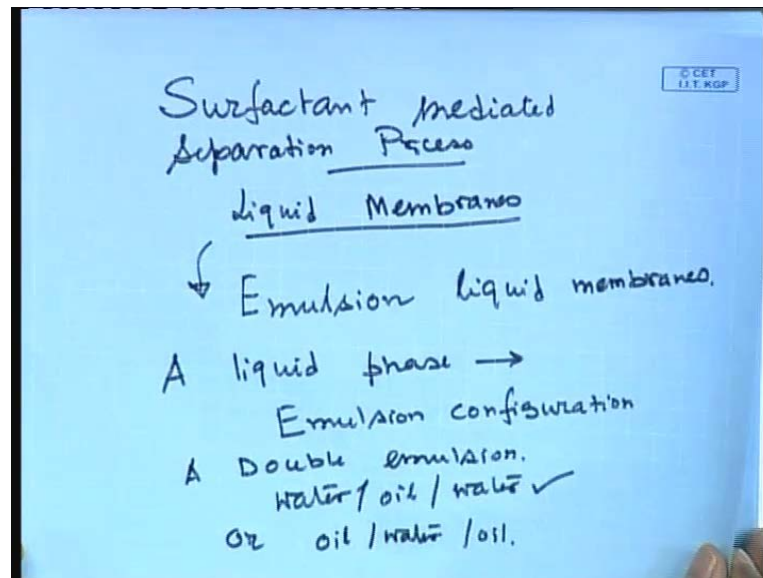 © CET
I.I.T. KGP
Surfactant mediated
Separation Process
Liquid Membranes
Emulsion liquid membranes.
A liquid phase →
Emulsion configuration
A Double emulsion.
water / oil / water ✓
Or oil / water / oil.